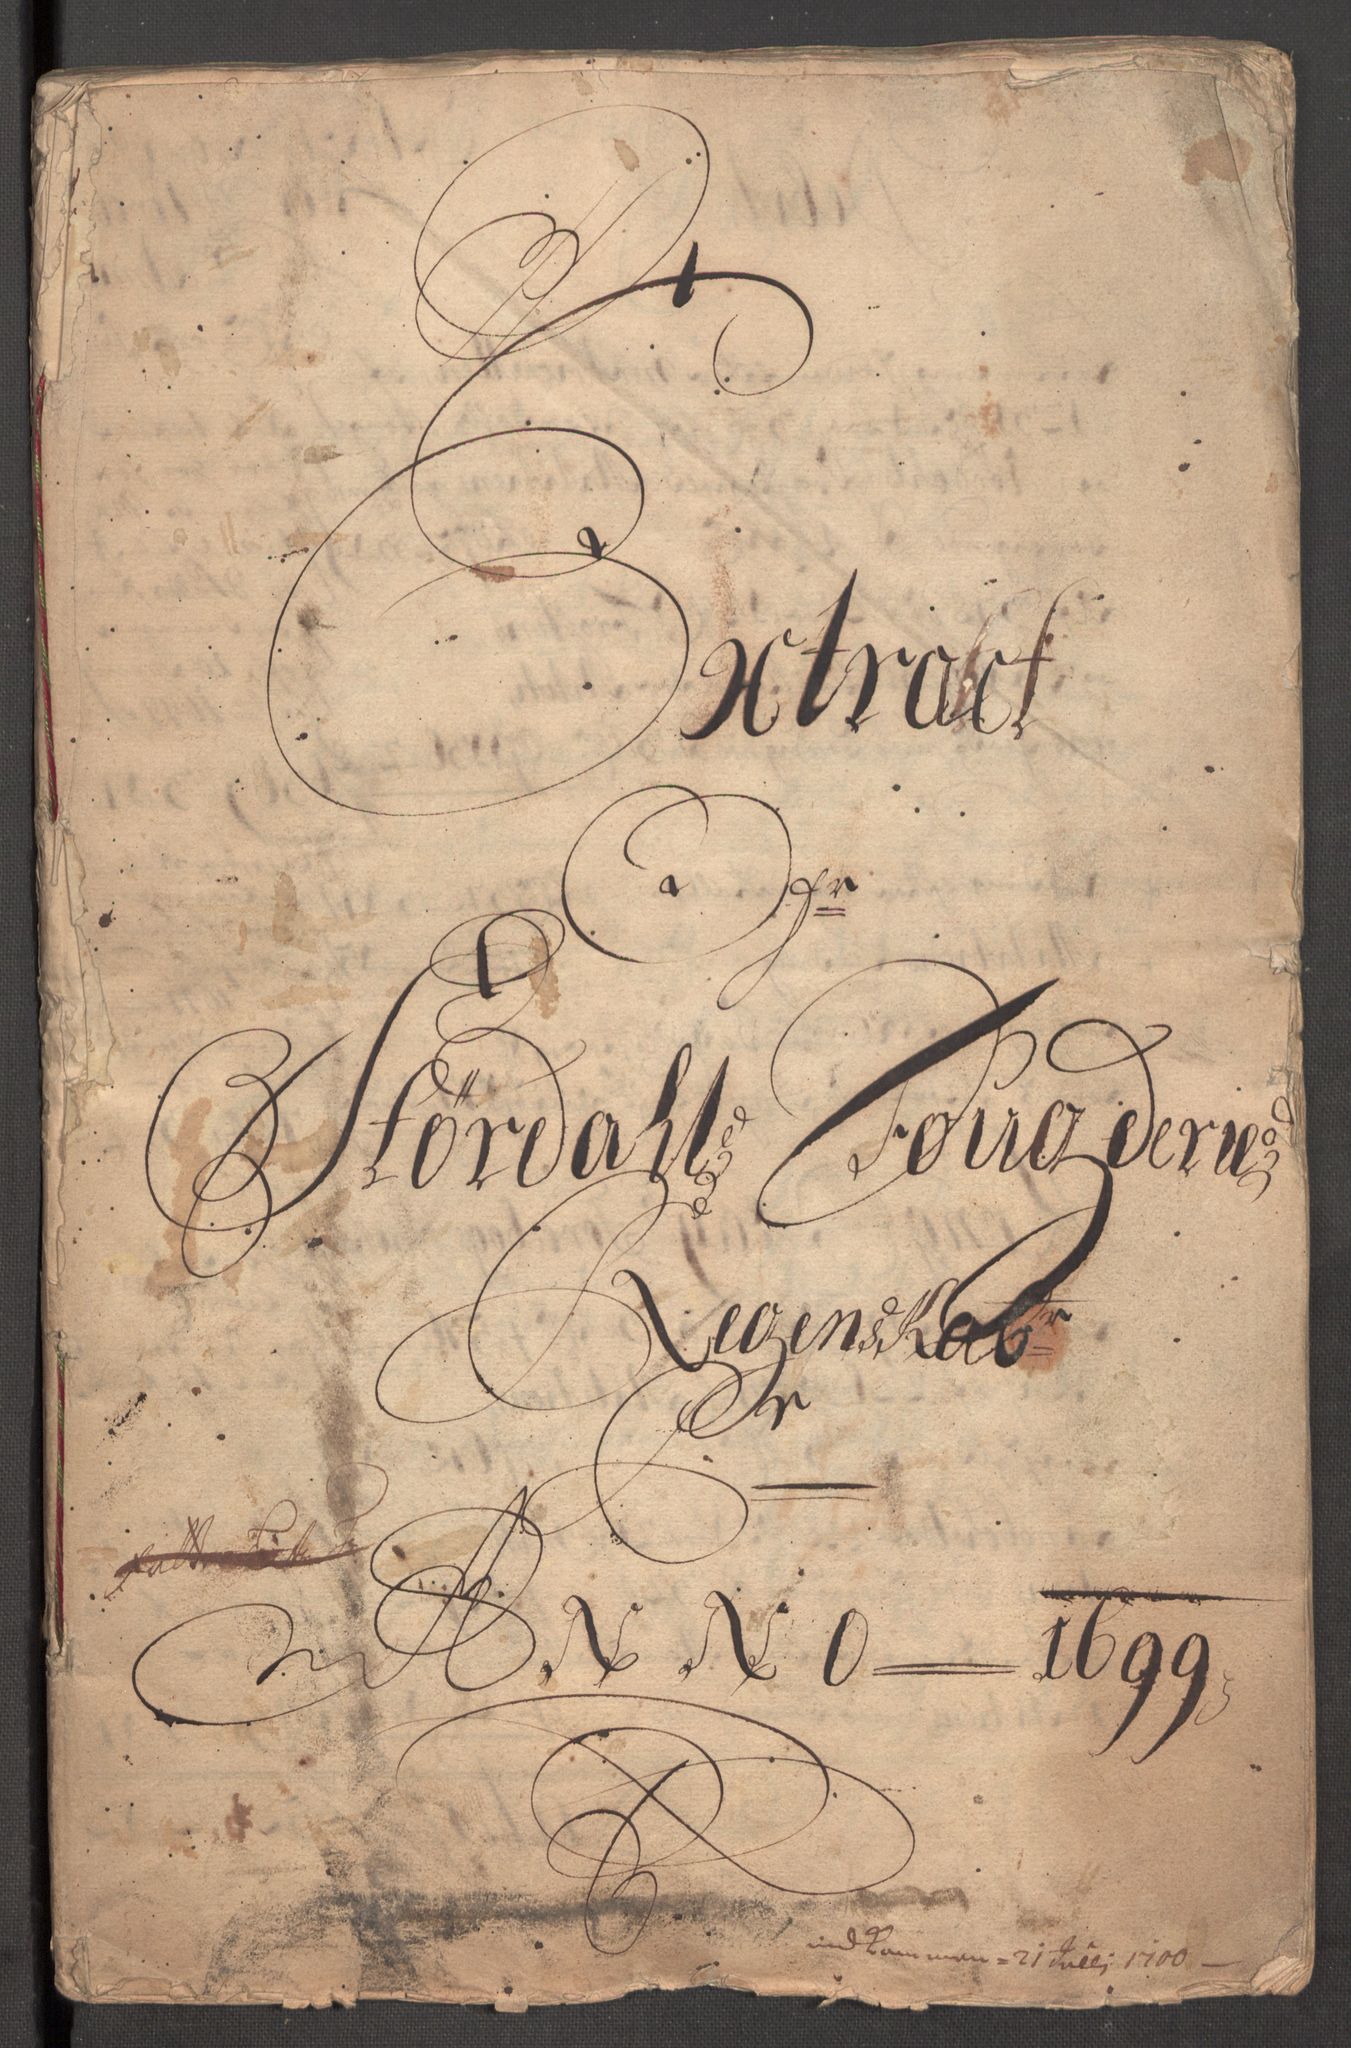 Extract
Ofr
Stördahls Fougderies
Regenskabr
Pr
ANNO 1699
indkommen = 21 Julij 1700